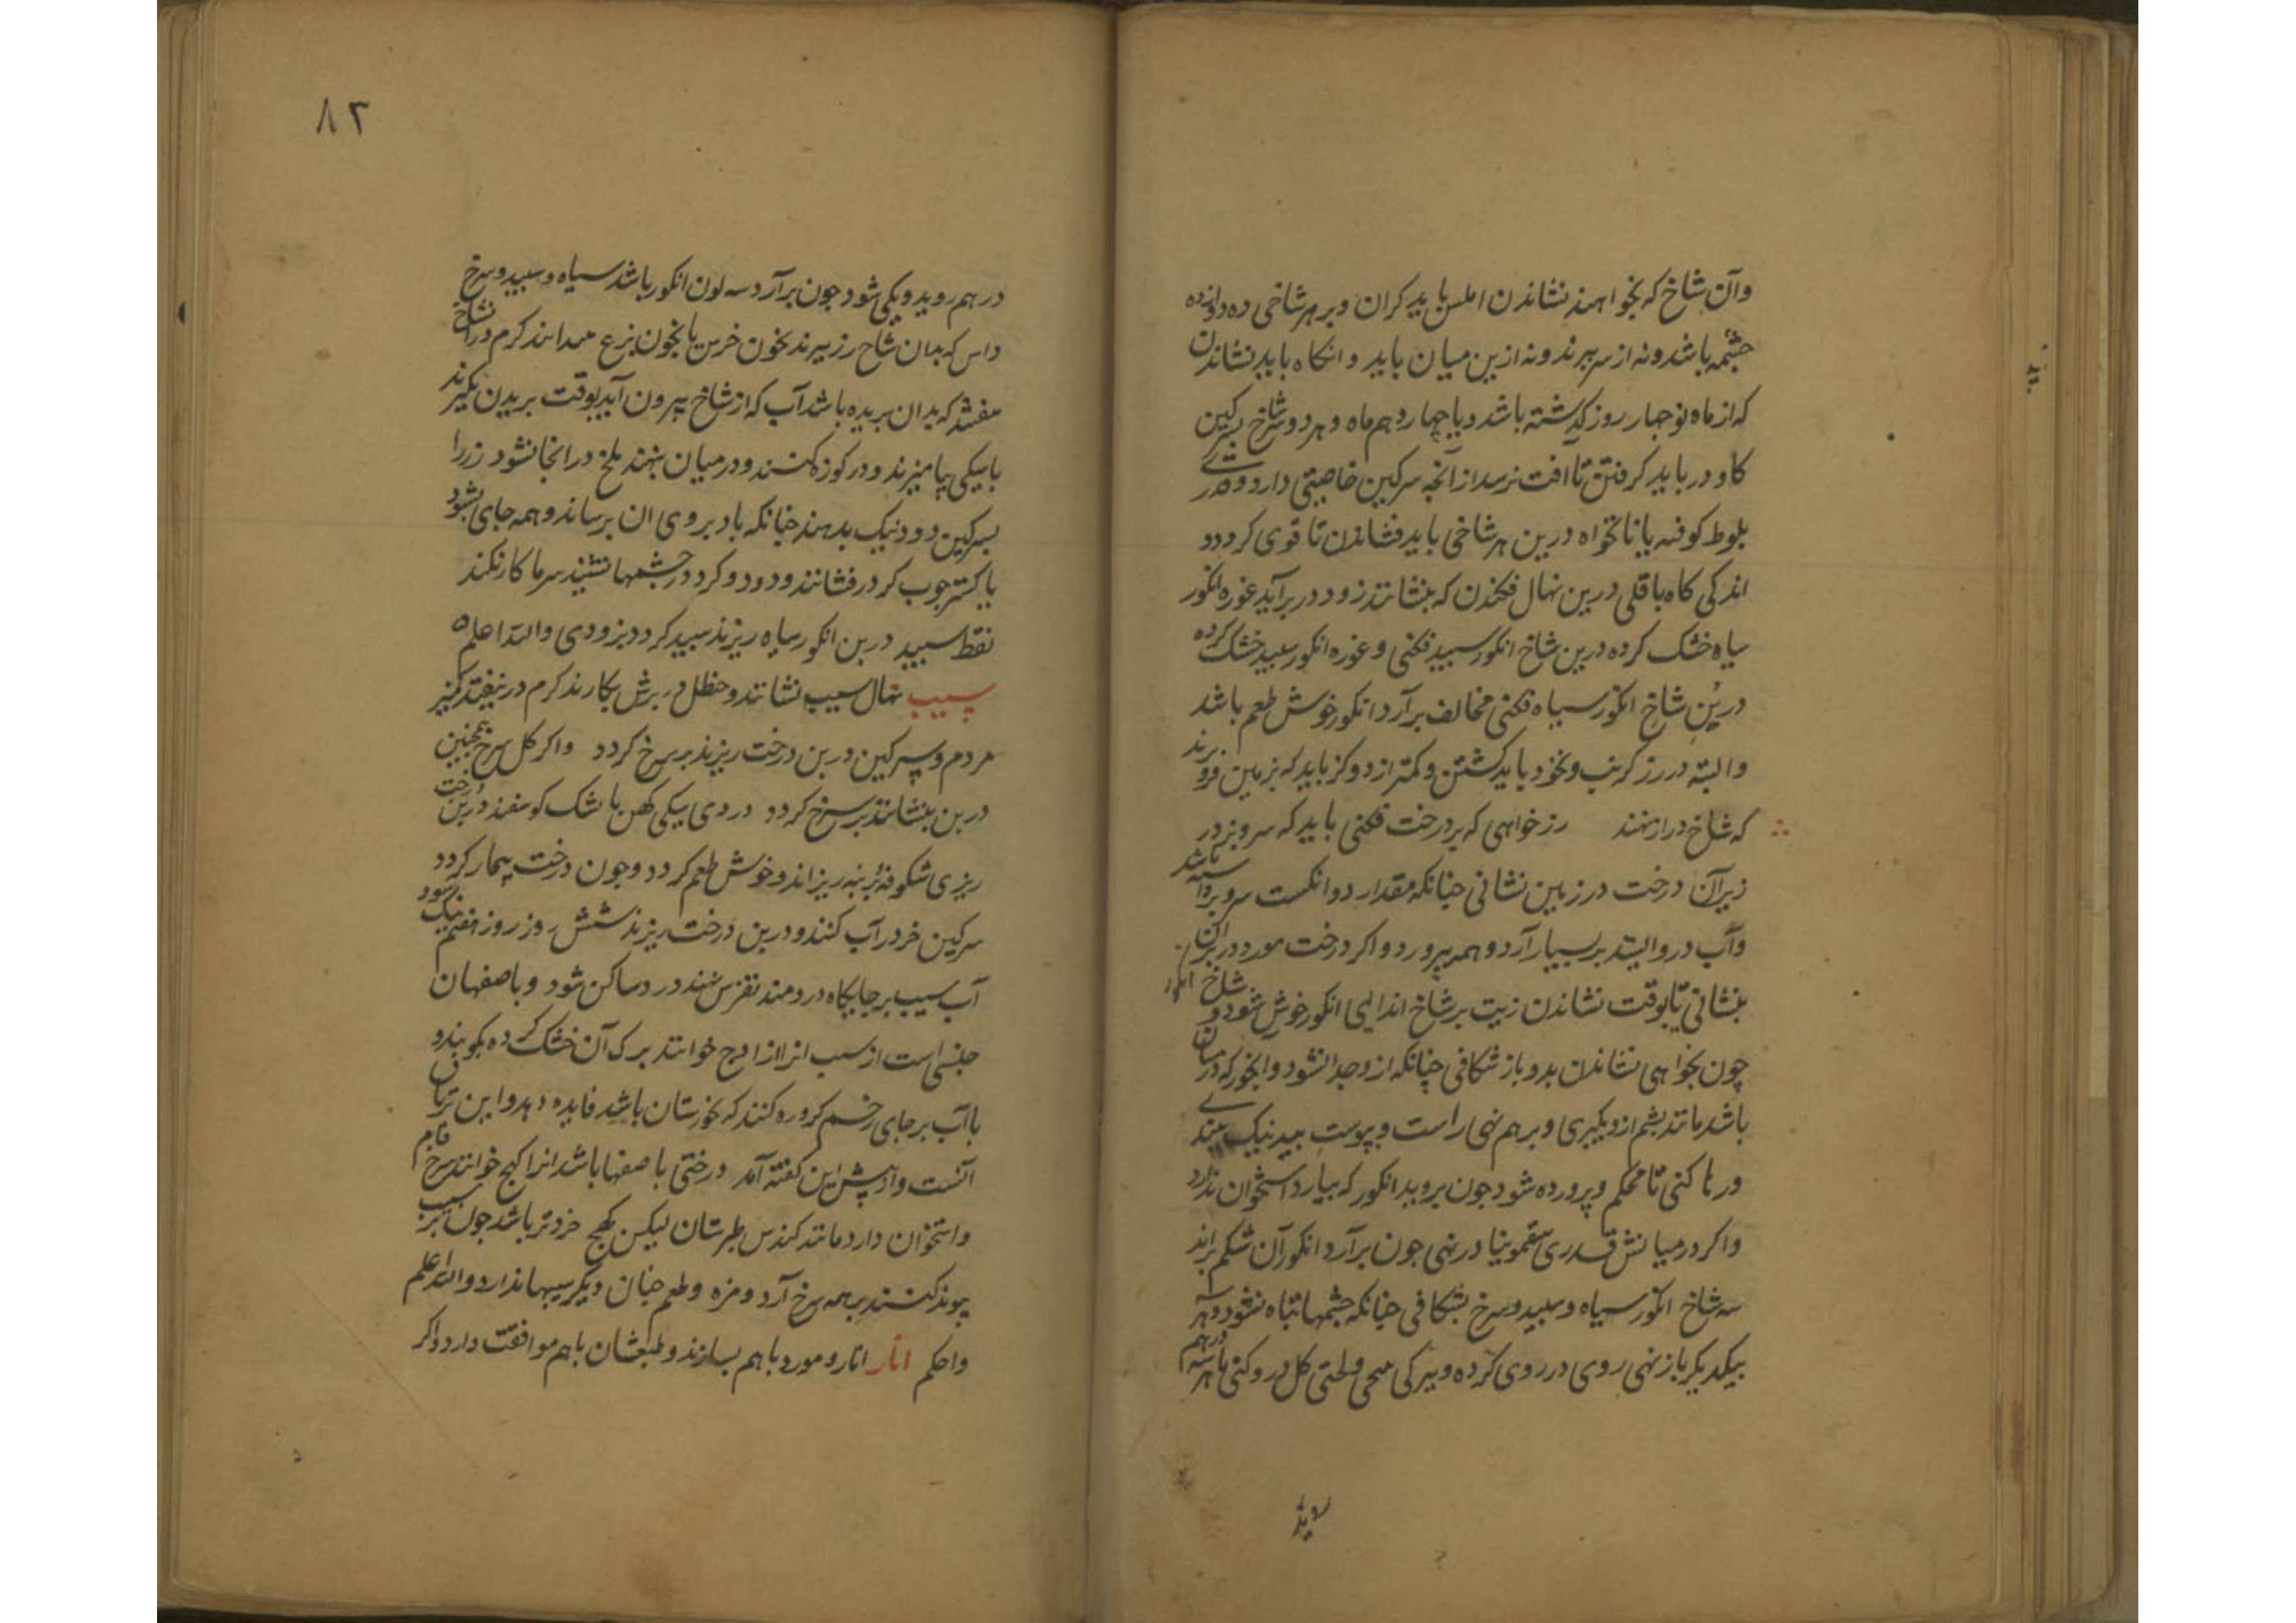 وآن شاخ که بخواهند نشاندن املس باید کران وبر هر شاخی ده دوازده
چشمه باشد ونه از سر برند ونه از بن میان باید وانکاه باید نشاندن
که از ماه نو جهار روز کذشته باشد ویا چهاردهم ماه وهر دو شاخ بسرکین
کاو در باید کرفتن تا آفت نرسد از آنچه سرکین خاصیتی دارد وقدری
بلوط کوفته یا نانخواه در بن هر شاخی باید فشاندن تا قوی کردد و
اندکی کاه باقلی در بن نهال فکندن که بنشانند زود در بر آید غوره انکور
سیاه خشک کرده در بن شاخ انکور سبید فکنی وغوره انکور سبید خشک کرده
در بن شاخ انکور سیاه فکنی مخالف بر آرد انکور خوش طعم باشد
والبته در رز کرنب ونخود باید کشتن وکمتر از دو کز باید که بزمین فرو برند
که شاخ دراز نهند رز خواهی که بر درخت فکنی باید که سرو بز در
زیر آن درخت در زمین نشانی جنانکه مقدار دو انکست سر وبر داشته باشد
وآب درو ایستد بر بسیار آرد وهمه بپرورد واکر درخت مورد در بر آن
بنشانی تا بوقت نشاندن زیت بر شاخ اندایی انکور خوش شود و شاخ انکور
چون بخواهی نشاندن بدو باز شکافی چنانکه از وجدا نشود وانجوز که در میان
باشد مانند پشم ازو بکیری وبر هم نهی راست وبپوست بید نیک ببندی
ورها کنی تا محکم وپرورده شود جون بروید انکور که بیارد استخوان ندارد
واکر در میانش قدری سقمونیا در نهی جون بر آرد انکور آن شکم براند
سه شاخ انکور سیاه وسبید وسرخ بشکافی جنانکه جشمها تباه نشود وهر سه
بیکدیکر باز نهی روی در روی کرده وبیرکی محی ولختی کل درو کنی تا هر سه درهم
لاید
۸۲
درهم روید ویکی شود جون بر آرد سه لون انکور باشد سیاه وسبید وسرخ
داس که بدان شاخ رز ببرند بخون خرس یا بخون بز ع میدایند کرم در آن شاخ
نیفتد که بدان بریده باشد آب که از شاخ بیرون آید بوقت بریدن بکیرند
با سیکی بیامیزند ودر کوزه کنند ودر میان بنهند ملخ در انجا نشود زر را
بسرکین دود نیک بدهند جنانکه باد بر وی ان برساند وهمه جای بشود
یا کستر جوب کر در فشانند ودود وکرد در جشمها نشیند سرما کار نکند
نفط سبید در بن انکور سیاه ریزند سبید کردد بزودی والله اعلم
سیب نهال سیب نشانند وحنظل در برش بکارند کرم در نیفتد کمیز
مردم وسرکین در بن درخت ریزند بر سرخ کردد واکر کل سرخ همجنین
در بن بنشانند بر سرخ کردد دردی سیکی کهن با بشک کوسفند در بن درخت
ریزی شکوفه بر نه ریزاند وخوش طعم کردد وجون درخت بیمار کردد
سرکین خر در آب کنند ودر بن درخت ریزند شش روز روز هفتم نیک شود
آب سیب بر جایکاه دردمند نقرس نهند درد ساکن شود وباصفهان
جنسی است از سیب انرا ازادرج خوانند برک آن خشک کرده بکوبند و
با آب بر جای زخم کروره کنند که خوزستان باشد فایده دهد واین تریاق
آنست وازپیش این کفته آمد درختی باصفهان باشد انرا کهج خوانند سرخ فام
واستخوان دارد مانند کندس طبرستان لیکن کهج خردتر باشد جون بر سیب
پیوند کنند بر همه سرخ آرد ومزه وطعم جنان دیکر سیبها ندارد والله اعلم
واحکم انار انار ومورد باهم بسازند وطبعشان باهم موافقت دارد واکر